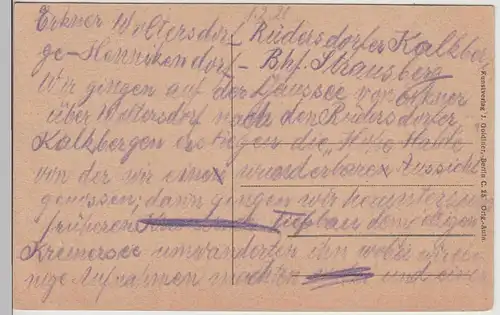 1.7.21
Erkner Woltersdorf Rüdersdorfer Kalkber
ge-Hennikendorf - Bhf. Strausberg
Wir gingen auf der Chaussee von Erkner
über Woltersdorf nach den Rüdersdorfer
Kalkbergen erstiegen die "Hohe Halde"
von der wir einen wunderbaren Aussicht
genossen; dann gingen wir hinunter zum
früheren Tiefbau dem jetzigen
Kreinersee umwanderten ihn wobei wir ei-
nige Aufnahmen machten und einen
Kunstverlag J. Goldiner, Berlin C. 25. Orig.-Aufn.